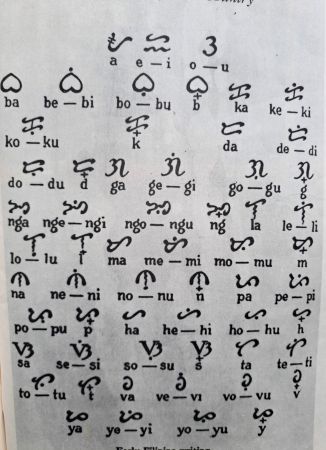 ᜀ ᜁ ᜂ
a e — i o — u
ᜊ ᜊᜒ ᜊᜓ ᜊ᜔ ᜃ ᜃᜒ
ba be — bi bo — bu b ka ke — ki
ᜃᜓ ᜃ᜔ ᜇ ᜇᜒ
ko — ku k da de — di
ᜇᜓ ᜇ᜔ ᜄ ᜄᜒ ᜄᜓ ᜄ᜔
do — du d ga ge — gi go — gu g
ᜅ ᜅᜒ ᜅᜓ ᜅ᜔ ᜎ ᜎᜒ
nga nge — ngi ngo — ngu ng la le — li
ᜎᜓ ᜎ᜔ ᜋ ᜋᜒ ᜋᜓ ᜋ᜔
lo — lu l ma me — mi mo — mu m
ᜈ ᜈᜒ ᜈᜓ ᜈ᜔ ᜉ ᜉᜒ
na ne — ni no — nu n pa pe — pi
ᜉᜓ ᜉ᜔ ᜑ ᜑᜒ ᜑᜓ ᜑ᜔
po — pu p ha he — hi ho — hu h
ᜐ ᜐᜒ ᜐᜓ ᜐ᜔ ᜆ ᜆᜒ
sa se — si so — su s ta te — ti
ᜆᜓ ᜆ᜔ ᜏ ᜏᜒ ᜏᜓ ᜏ᜔
to — tu t va ve — vi vo — vu v
ᜌ ᜌᜒ ᜌᜓ ᜌ᜔
ya ye — yi yo — yu y
Early Filipino writing